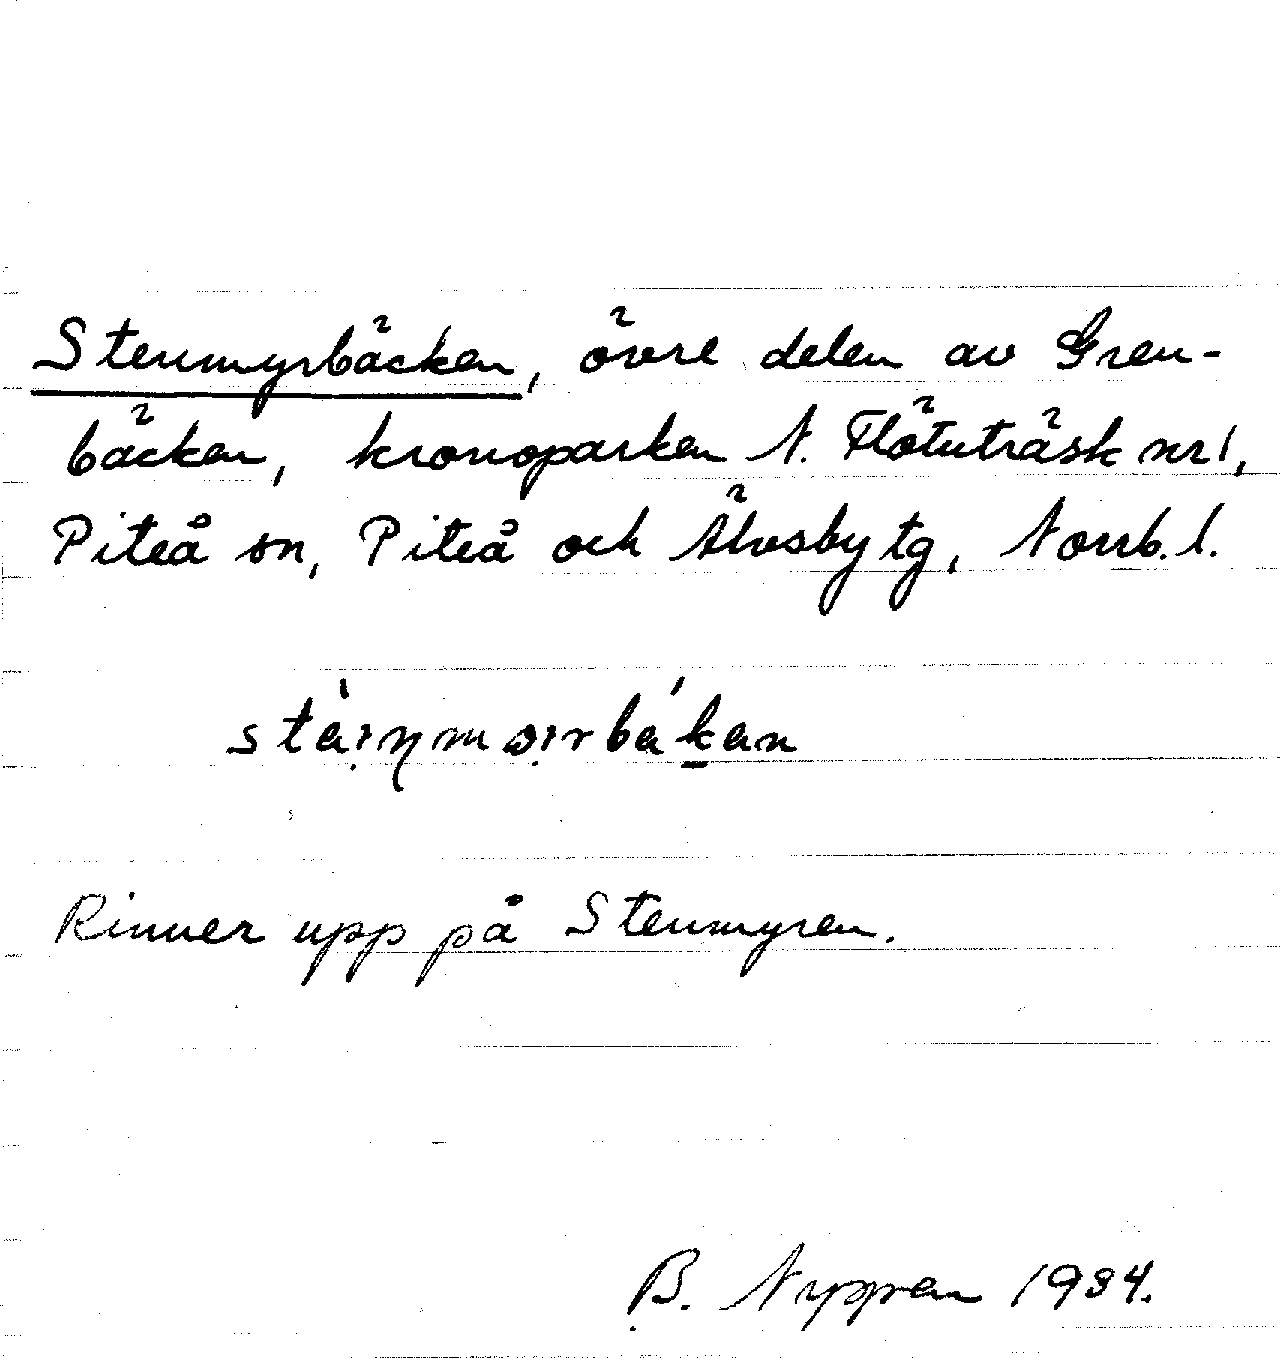 Stenmyrbäcken, övre delen av Gren-
bäcken, kronoparken N. Flötuträsk nr 1,
Piteå sn, Piteå och Älvsby tg, Norrb. l.
Rinner upp på Stenmyren.
B. Nygren 1934.